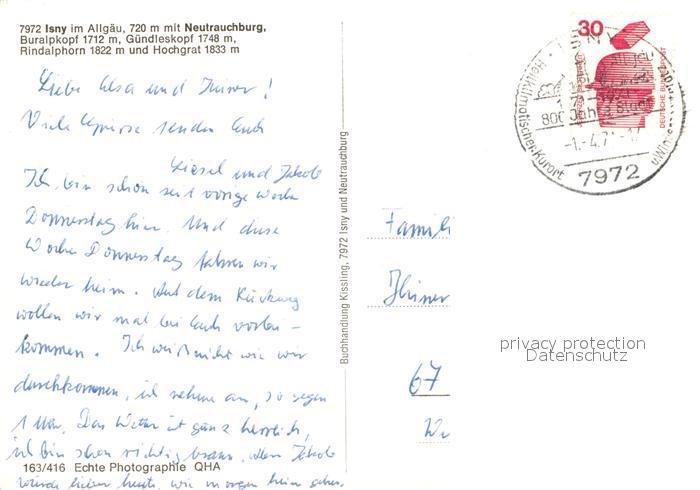 7972 Isny im Allgäu, 720 m mit Neutrauchburg,
Buralpkopf 1712 m, Gündleskopf 1748 m,
Rindalphorn 1822 m und Hochgrat 1833 m
Liebe Elsa und !
Viele Grüsse senden Euch
Liesel und Jakob
Ich bin schon seit vorige Woche
Donnerstag hier. Und diese
Woche Donnerstag fahren wir
wieder heim. Auf dem Rückweg
wollen wir mal bei Euch vorbei-
kommen. Ich weiß nicht wie wir
durchkommen, ich nehme an, so gegen
1 Uhr. Das Wetter ist ganz herrlich,
ich bin schon richtig braun, aber Jakob
würde lieber heute, wie morgen heim gehen.
163/416 Echte Photographie QHA
Buchhandlung Kissling, 7972 Isny und Neutrauchburg
30
DEUTSCHE BUNDESPOST
ISNY
Heilklimatischer Kurort
800 Jahre Stadt
7972
Famili
67
privacy protection
Datenschutz